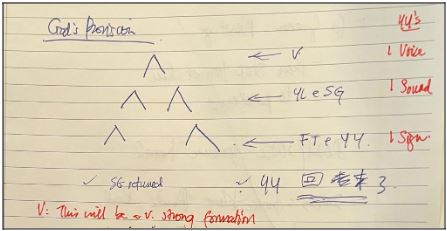 God's Provision
YY's
← V
↓ Voice
← YL e SG
↓ Sound
← FT e YY.
↓ Sign
✓ SG returned
✓ YY 回来了
V: This will be a v. strong formation